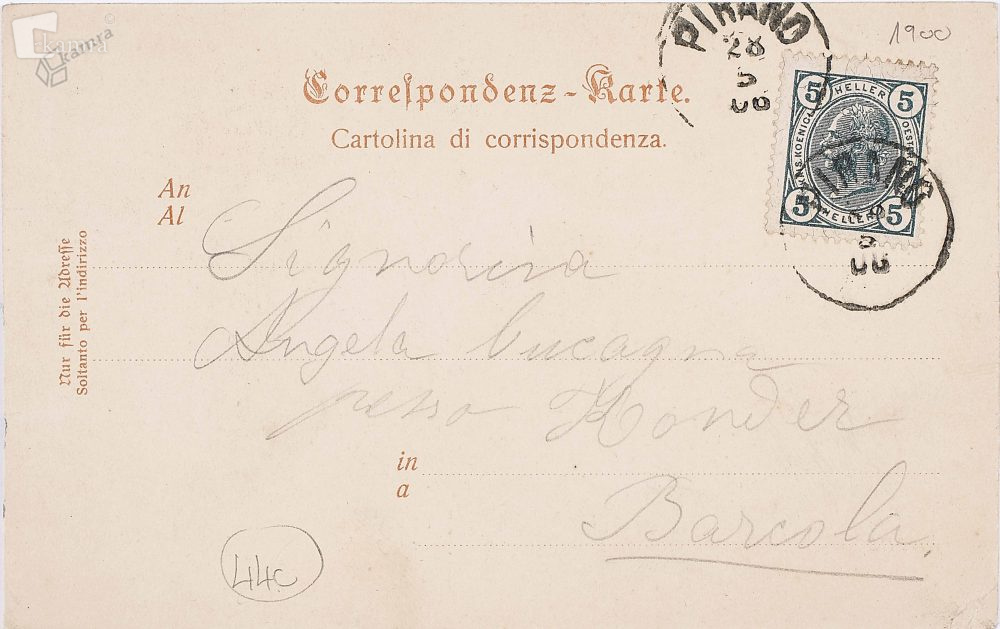 kamra
kamra
1900
PIRANO
28
Correspondenz-Karte.
Cartolina di corrispondenza.
5 HELLER 5
5 HELLER 5
PIRANO
An
Al
Signorina
Angela Cucagna
presso
in
a
Barcola
Nur für die Adresse
Soltanto per l'indirizzo
44c